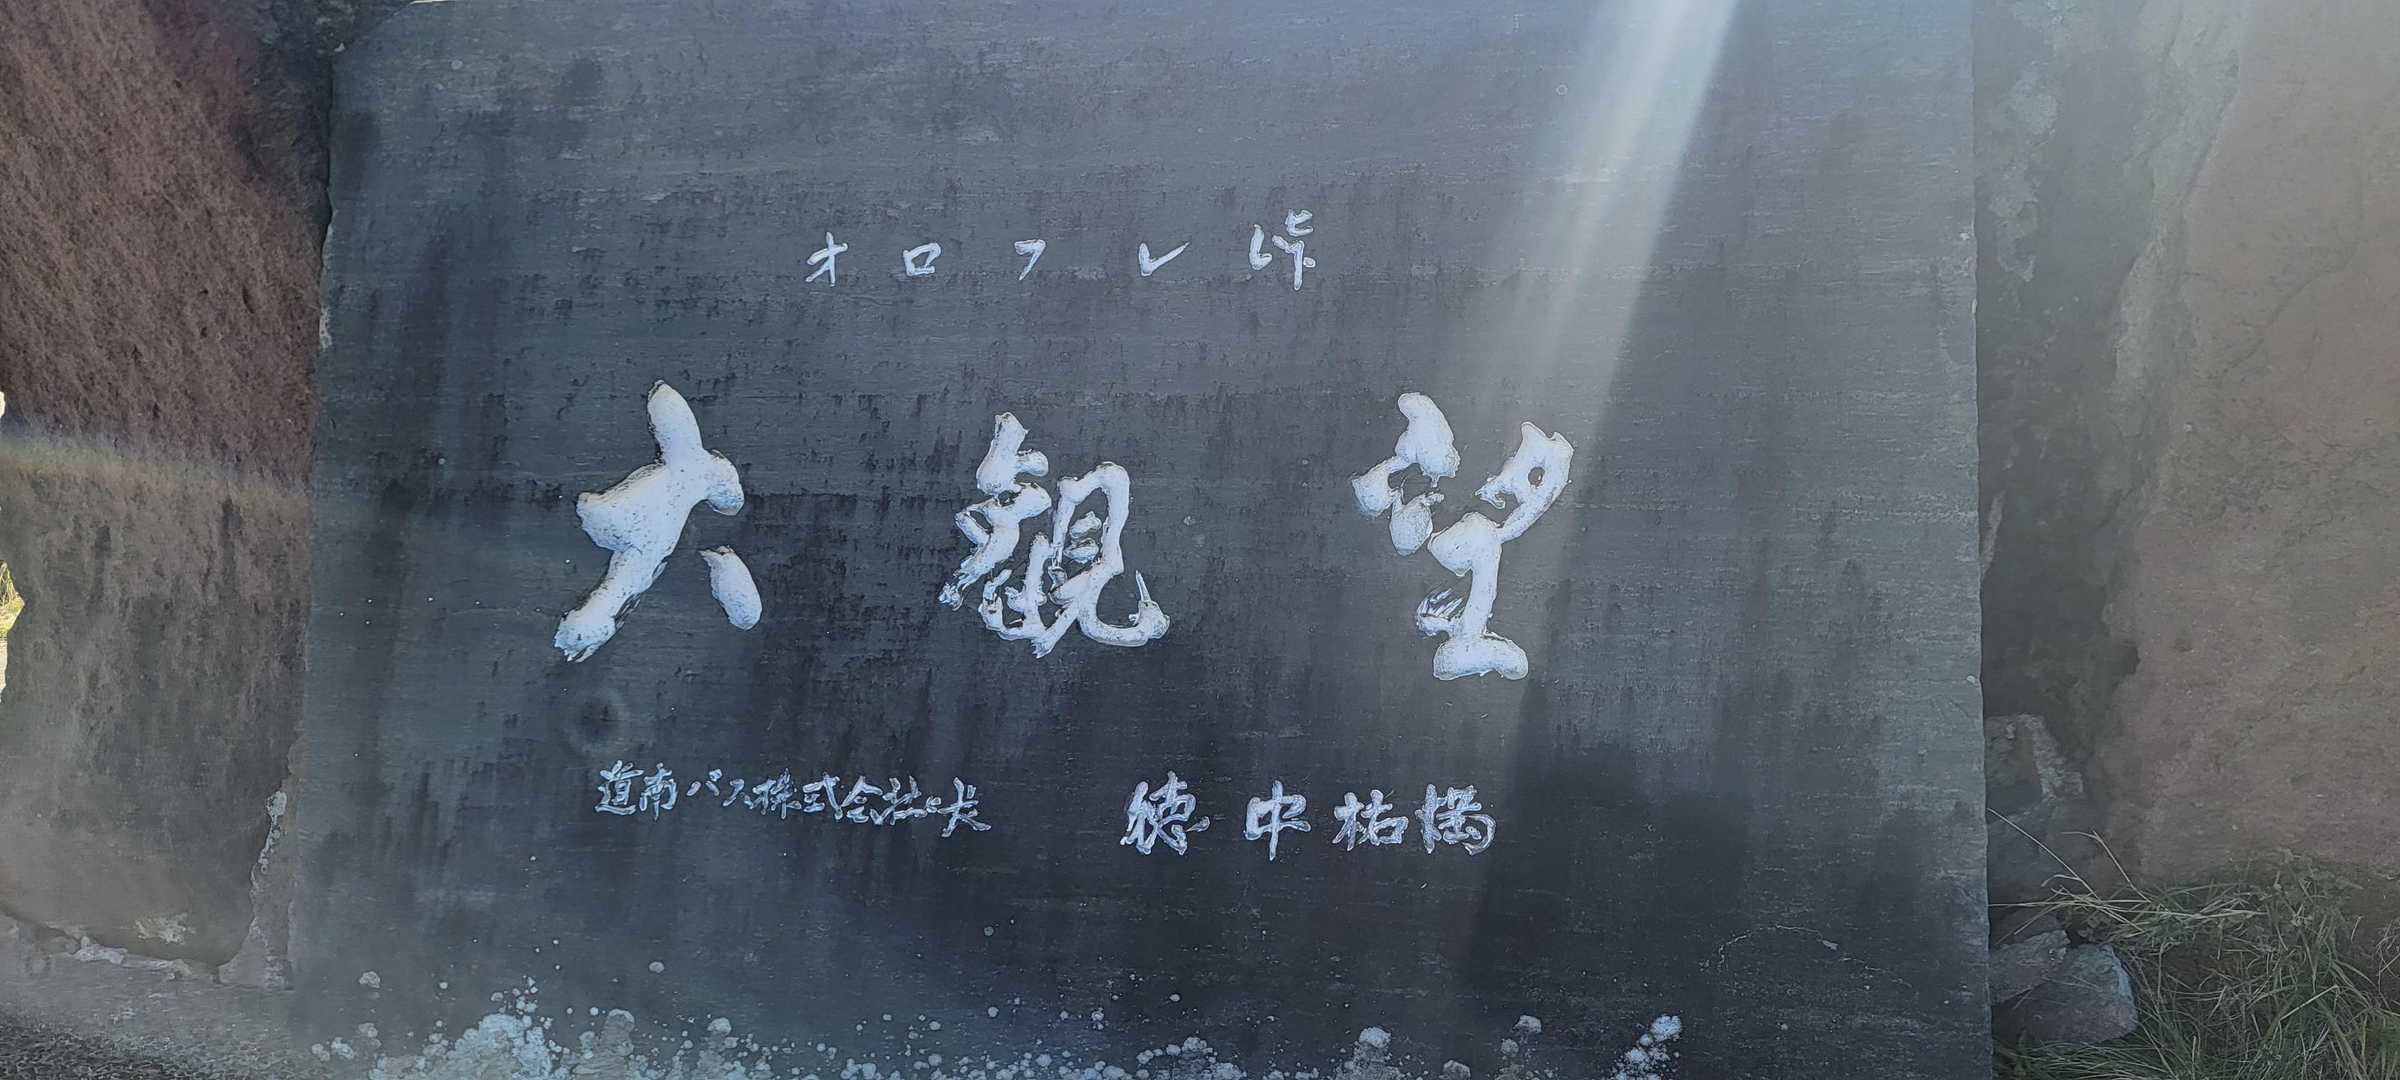 オロフレ峠
大観望
道南バス株式会社々長 徳中祐満